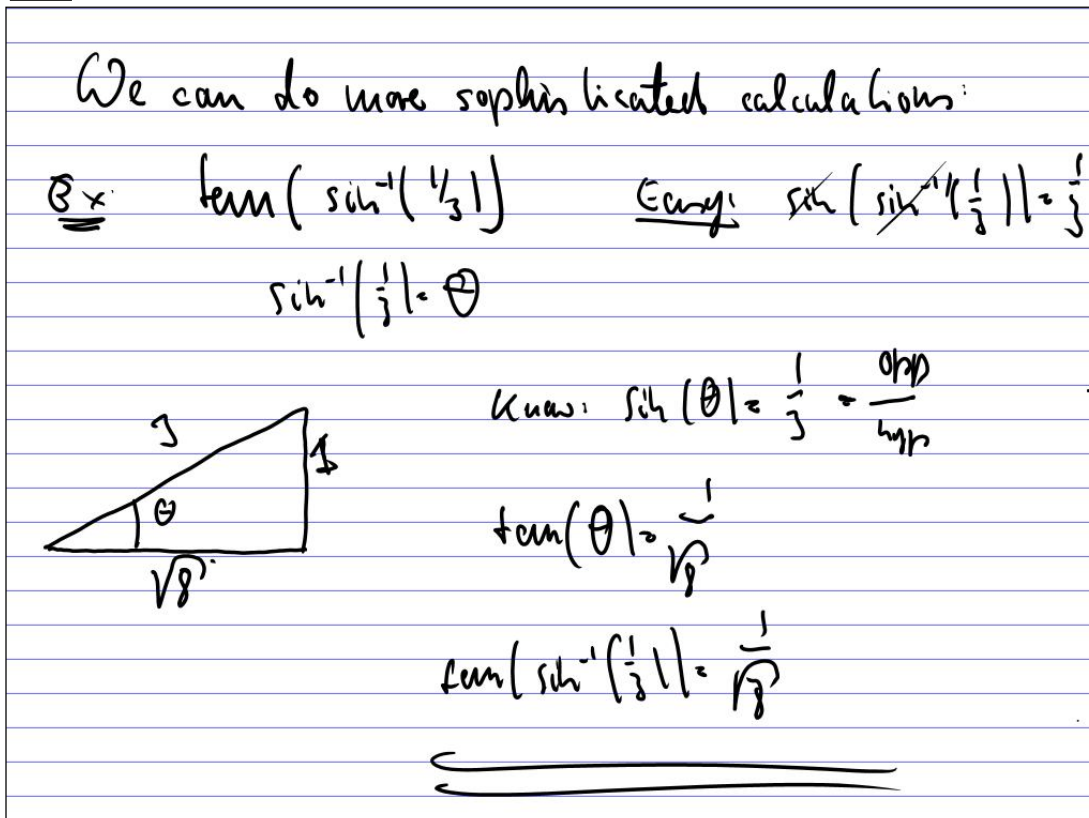 We can do more sophisticated calculations:
Ex: tan( sin⁻¹( 1/3 )) Easy: sin( sin⁻¹( 1/3 )) = 1/3
sin⁻¹( 1/3 ) = θ
Know: sin(θ) = 1/3 = opp/hyp
3
1
θ
√8
tan(θ) = 1/√8
tan( sin⁻¹( 1/3 )) = 1/√8